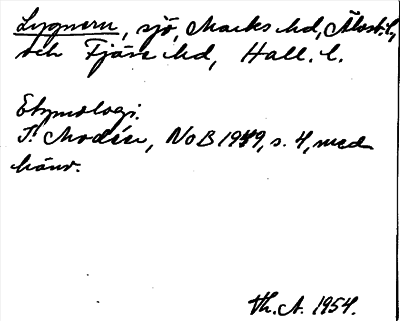 Lygnern, sjö, Marks hd, Älvsb. l,
och Fjäre hd, Hall. l.
Etymologi.
T. Modéer, NoB 1949, s. 4, med
hänv.
Th. A. 1954.